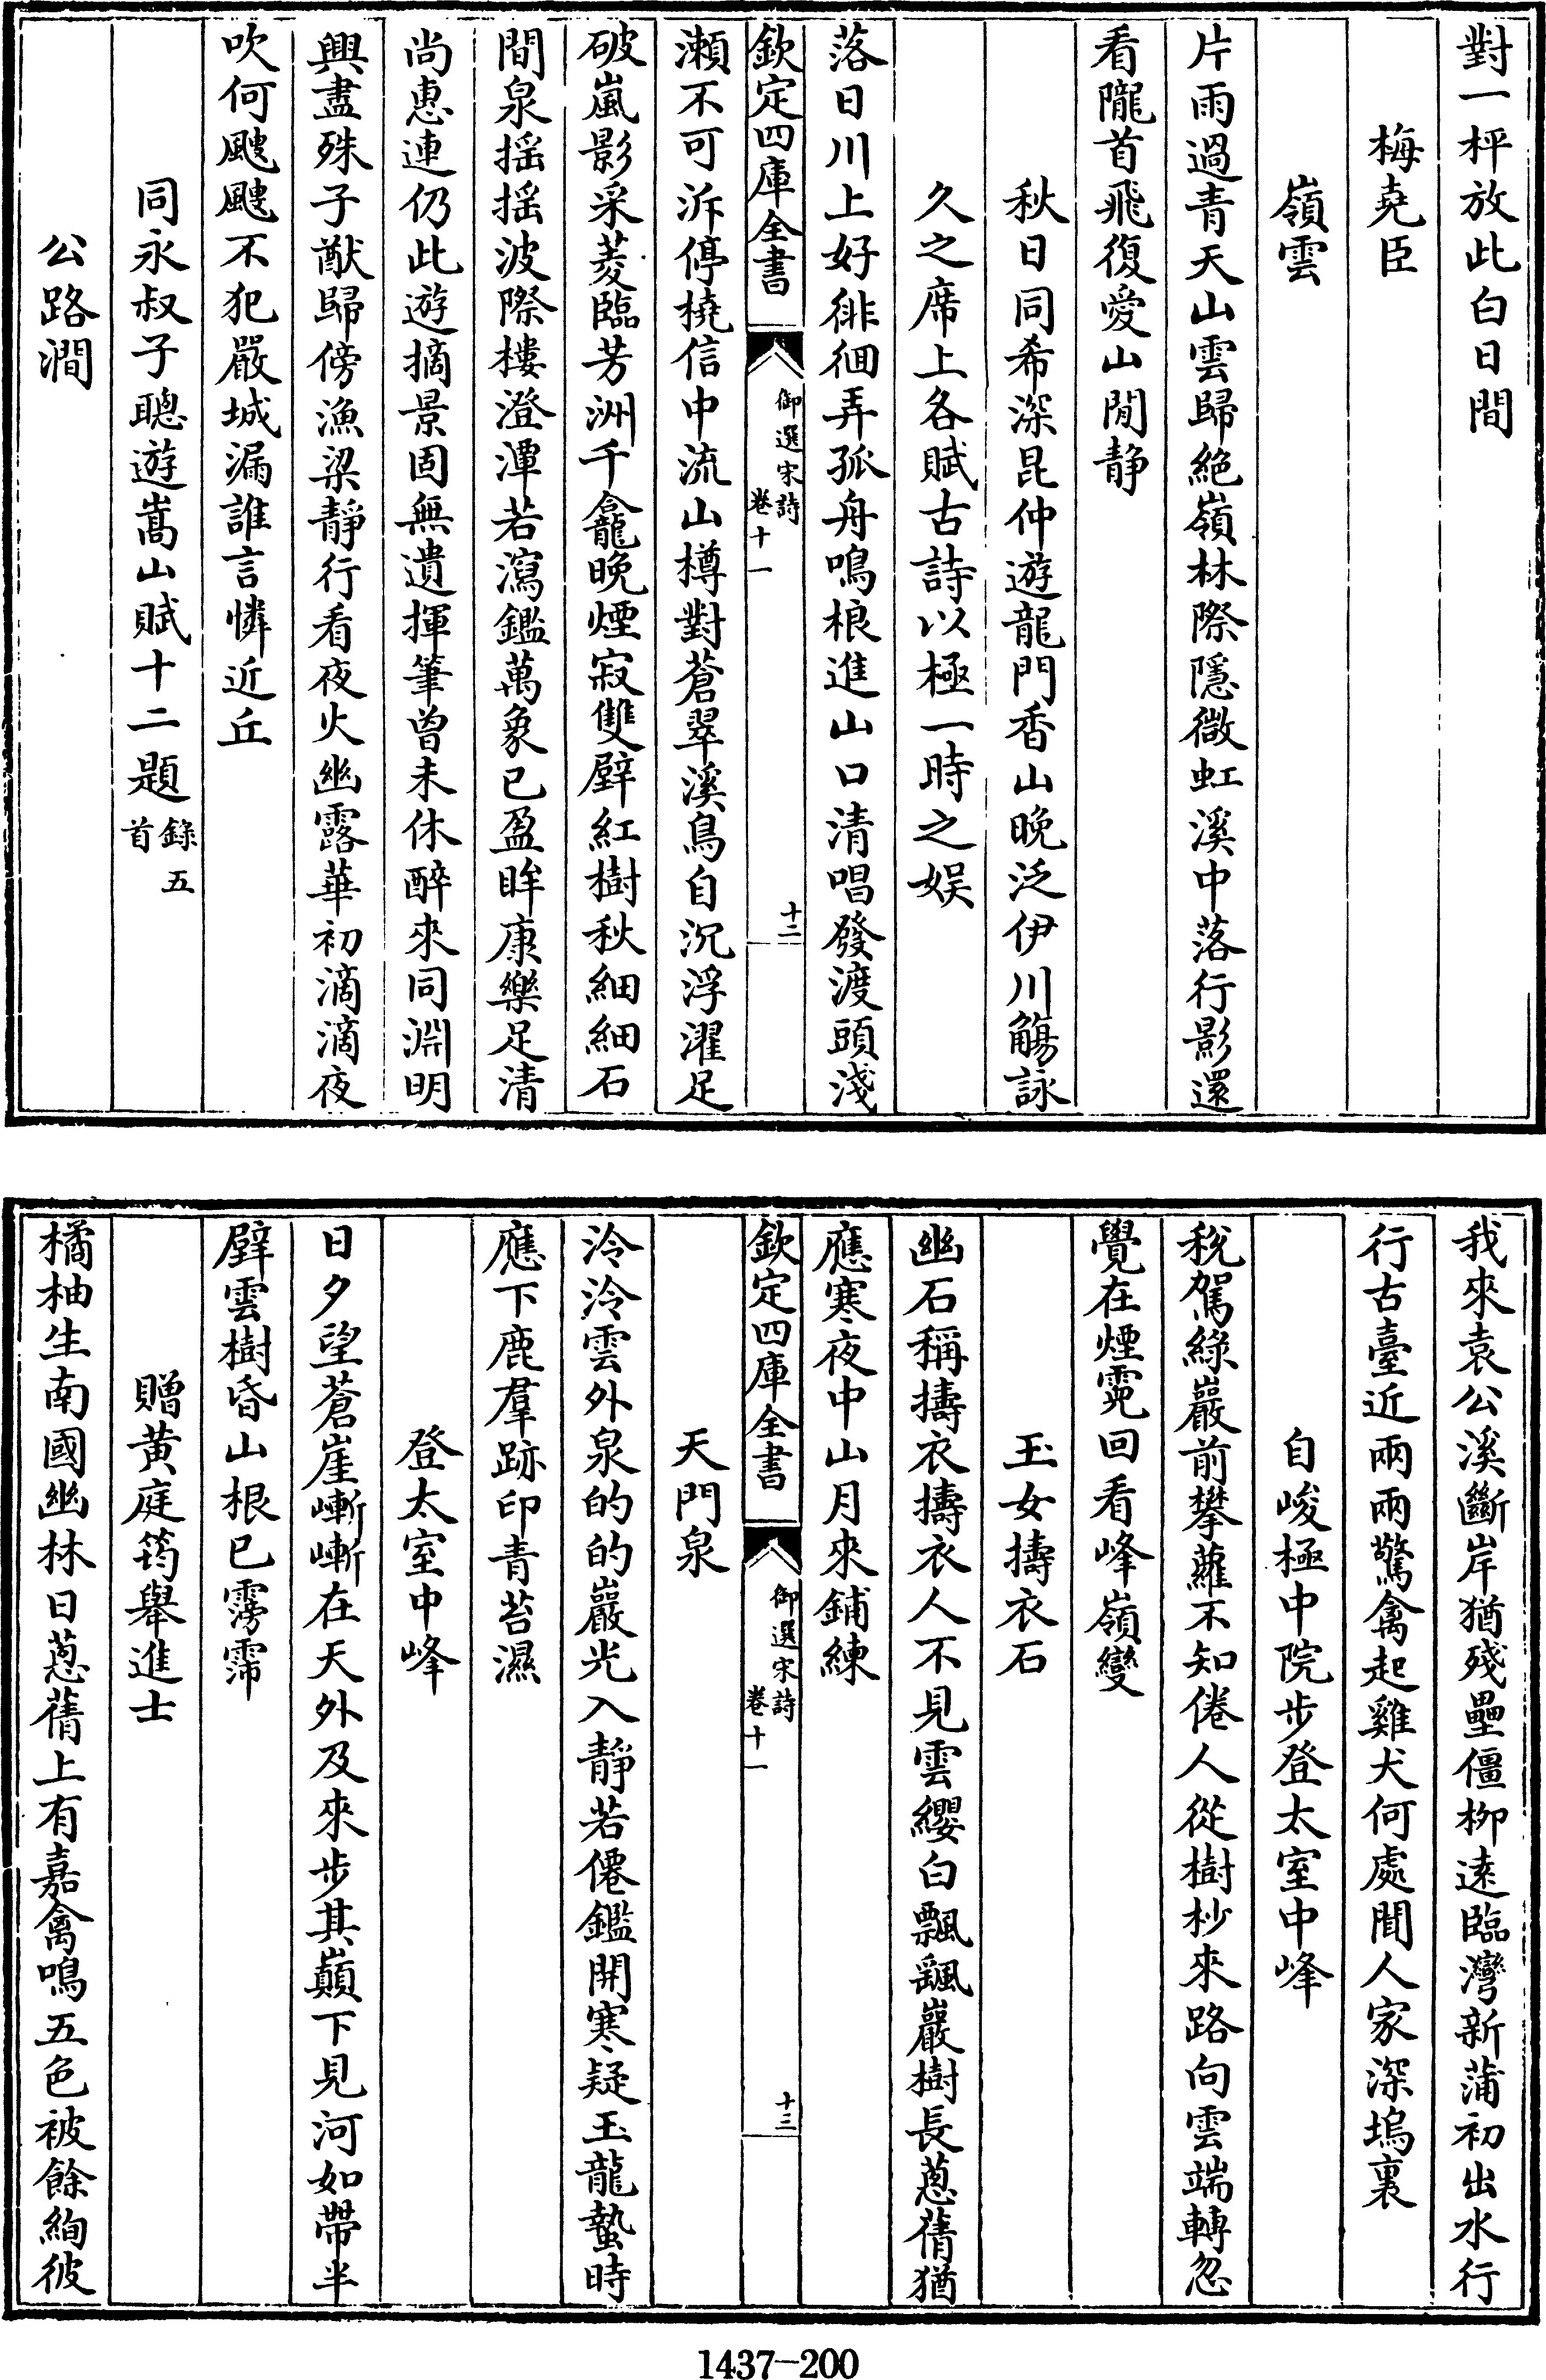 對一枰放此白日間
梅堯臣
嶺雲
片雨過青天山雲歸絶嶺林際隱微虹溪中落行影還
看隴首飛復愛山閒静
秋日同希深昆仲遊龍門香山晚泛伊川觴詠
久之席上各賦古詩以極一時之娱
落日川上好徘徊弄孤舟鳴桹進山口清唱發渡頭淺
欽定四庫全書
御選宋詩
卷十一
十二
瀨不可泝停橈信中流山樽對蒼翠溪鳥自沉浮濯足
破嵐影采菱臨芳洲千龕晚煙寂雙壁紅樹秋細細石
間泉揺揺波際樓澄潭若瀉鑑萬象已盈眸康樂足清
尚惠連仍此遊摘景固無遺揮筆曾未休醉來同淵明
興盡殊子猷歸傍漁梁靜行看夜火幽露華初滴滴夜
吹何颼颼不犯嚴城漏誰言憐近丘
同永叔子聰遊嵩山賦十二題録五首
公路澗
我來袁公溪斷岸猶殘壘僵栁逺臨灣新蒲初出水行
行古臺近兩兩驚禽起雞犬何處聞人家深塢裏
自峻極中院步登太室中峰
税駕緑巖前攀蘿不知倦人從樹杪來路向雲端轉忽
覺在煙霓回看峰嶺變
玉女擣衣石
幽石稱擣衣擣衣人不見雲纓白飄飖巖樹長蔥蒨猶
應寒夜中山月來鋪練
欽定四庫全書
御選宋詩
卷十一
十三
天門泉
泠泠雲外泉的的巖光入靜若僊鑑開寒疑玉龍蟄時
應下鹿羣跡印青苔濕
登太室中峰
日夕望蒼崖嶄嶄在天外及來步其巔下見河如帶半
壁雲樹昏山根已霶霈
贈黄庭筠舉進士
橘柚生南國幽林日蔥蒨上有嘉禽鳴五色被餘絢彼
1437-200